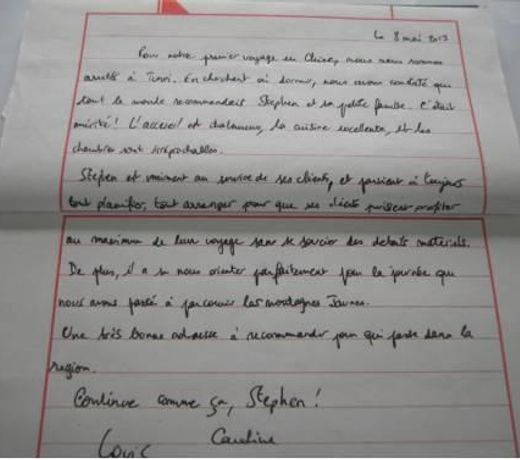 Le 8 mai 2013
Pour notre premier voyage en Chine, nous nous sommes
arrêtés à Tunxi. En cherchant où dormir, nous avons constaté que
tout le monde recommandait Stephen et sa petite famille. C'était
mérité! L'accueil est chaleureux, la cuisine excellente, et les
chambres sont irréprochables.
Stephen est vraiment au service de ses clients, et parvient à toujours
tout planifier, tout arranger pour que ses clients puissent profiter
au maximum de leur voyage sans se soucier des détails matériels.
De plus, il a su nous orienter parfaitement pour la journée que
nous avons passé à parcourir les montagnes Jaunes.
Une très bonne adresse à recommander pour qui passe dans la
région.
Continue comme ça, Stephen!
Caroline
Loïc